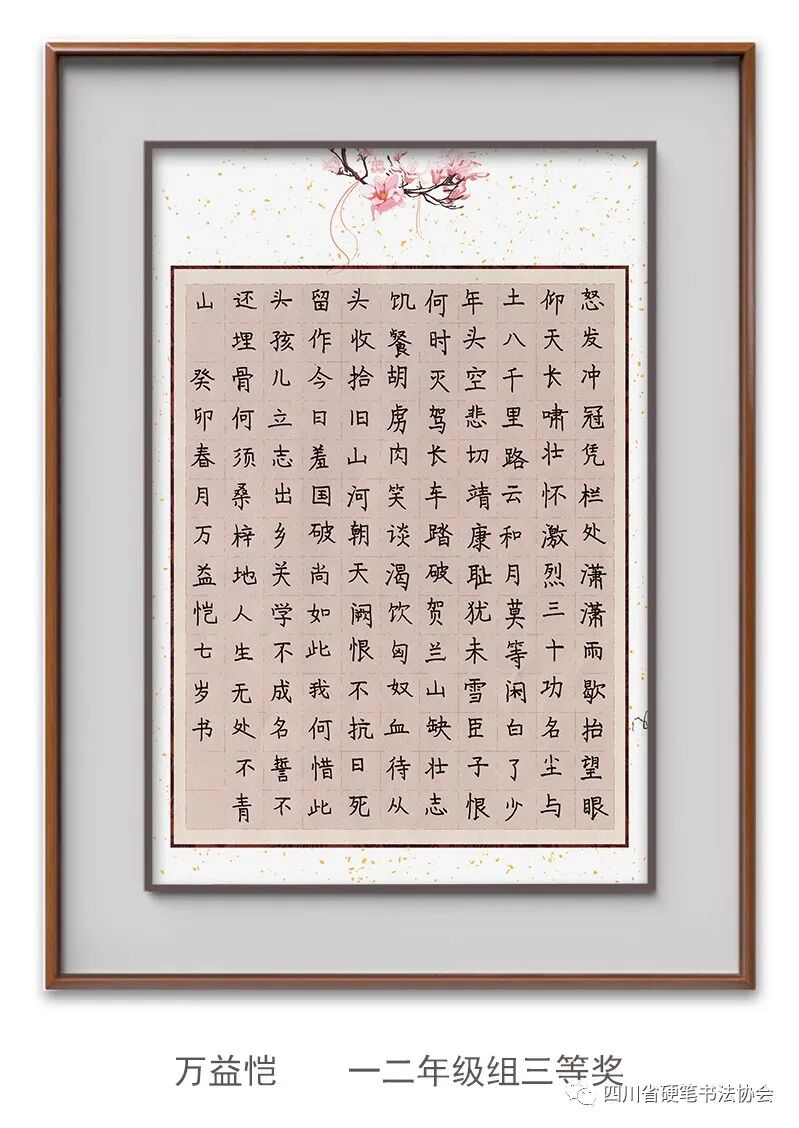 怒发冲冠凭栏处潇潇雨歇抬望眼
仰天长啸壮怀激烈三十功名尘与
土八千里路云和月莫等闲白了少
年头空悲切靖康耻犹未雪臣子恨
何时灭驾长车踏破贺兰山缺壮志
饥餐胡虏肉笑谈渴饮匈奴血待从
头收拾旧山河朝天阙恨不抗日死
留作今日羞国破尚如此我何惜此
头孩儿立志出乡关学不成名誓不
还埋骨何须桑梓地人生无处不青
山 癸卯春月万益恺七岁书
万益恺 一二年级组三等奖
四川省硬笔书法协会